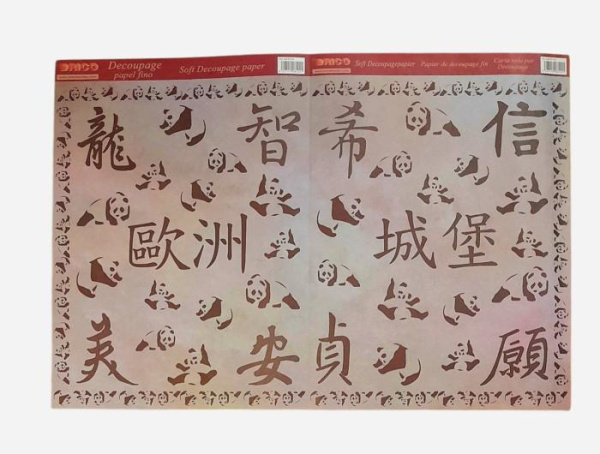 Decoupage
papel fino
Soft Decoupage paper
Soft Decoupagepapier
Papier de decoupage fin
Carta riso per
Decoupage
龍 智 希 信
歐洲 城堡
美 安 貞 願